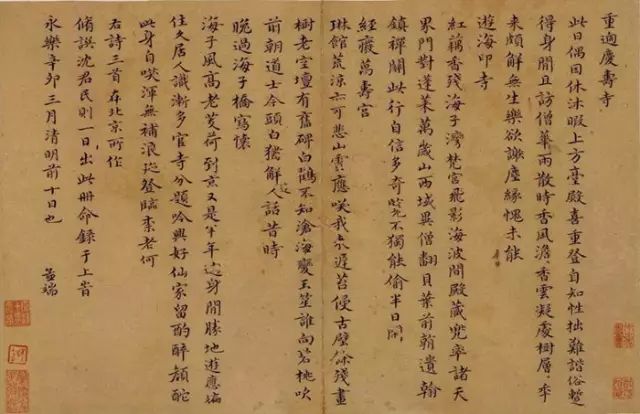 重過慶壽寺
此日偶因休沐暇上方臺殿喜重登自知性拙難諧俗暫
得身閒且訪僧華雨散時香風澹香雲凝處樹層〻年
来頗解無生樂欲謝塵緣愧未能
遊海印寺
紅藕香殘海子灣梵宮飛影海波間殿藏兜率諸天
界門對蓬萊萬歲山西域異僧翻貝葉前朝遺翰
鎮禪關此行自信多奇不獨能偷半日閒
經廢萬壽宮
琳館荒涼亦可悲山雲應笑我来遲苔侵古壁餘殘畫
樹老空壇有舊碑白鶴不知滄海變玉笙誰向碧桃吹
前朝道士今頭白猶解人話昔時
晚過海子橋寫懷
海子風高老芰荷到京又是半年過身閒勝地遊應遍
住久居人識漸多官寺分題吟興好仙家留酌醉顏酡
此身自笑渾無補浪迹登臨柰老何
右詩三首在北京所作
脩譔沈君民則一日出此冊命錄于上旹
永樂辛卯三月清明前十日也
孟端